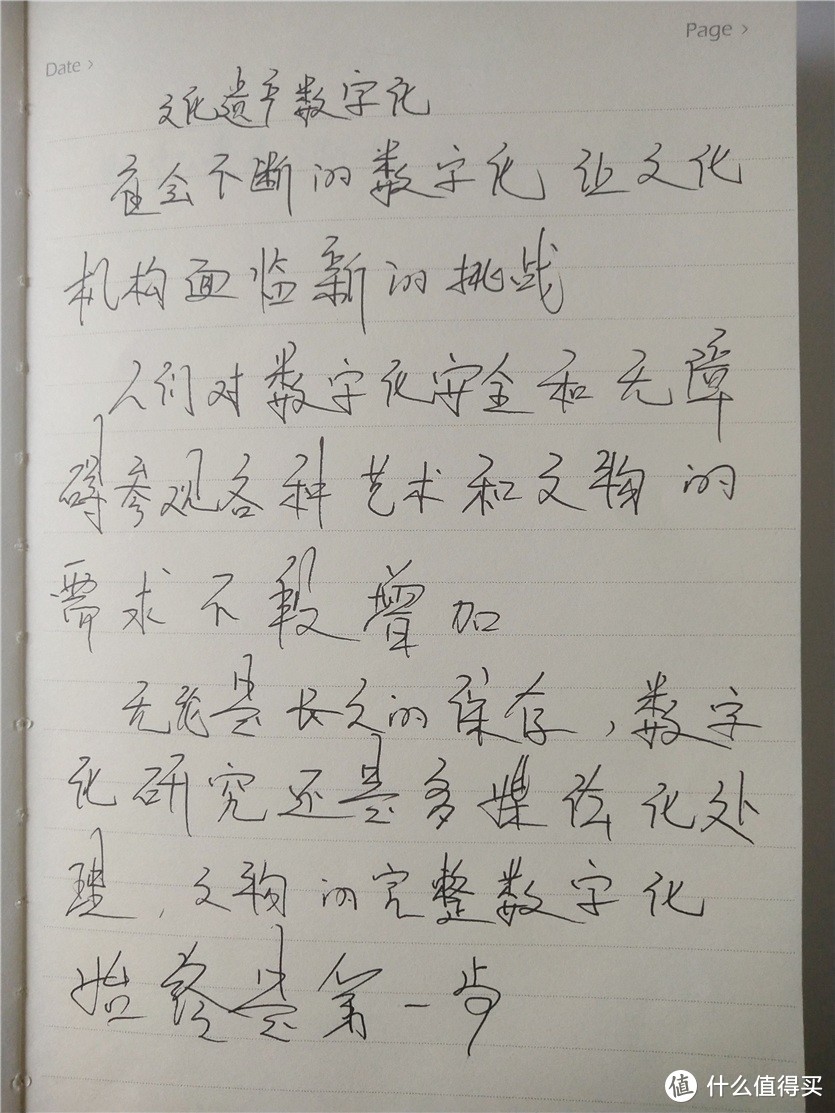 Page >
Date >
文化遗产数字化
会不断的数字化 让文化
机构面临新的挑战
人们对数字化安全和无障
碍参观各种艺术和文物的
需求不段增加
无论是长久的保存，数字
化研究还是多媒化处
理，文物的完整数字化
始是第一步
值 什么值得买